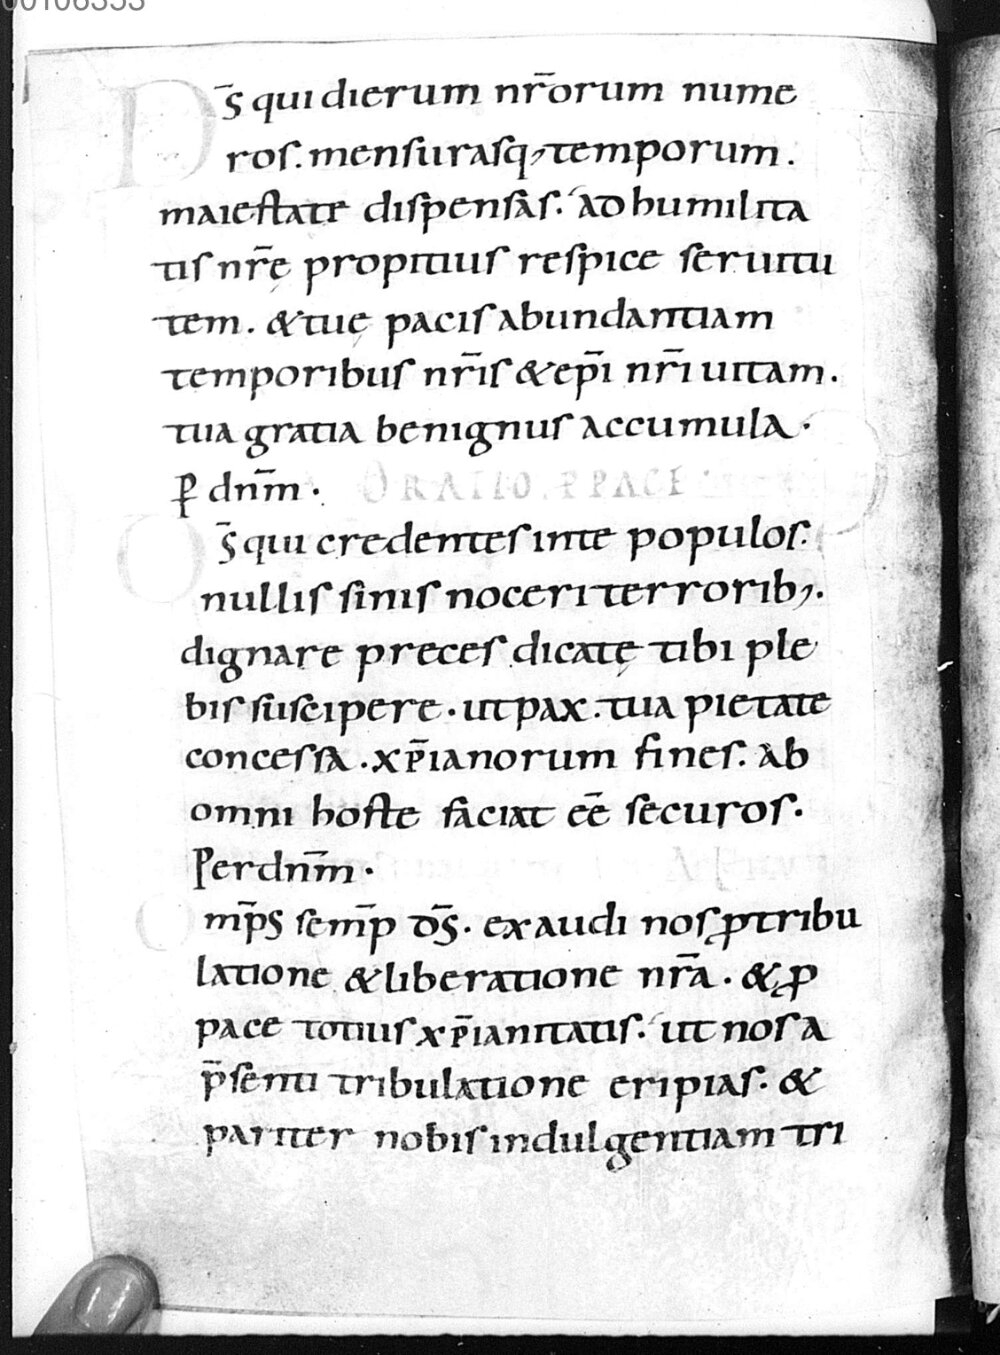 00106353
D͞s qui dierum nr̄orum nume
ros. mensurasq; temporum.
maiestate dispensas. ad humilita
tis nr̄ę propitius respice seruitu
tem. & tuę pacis abundantiam
temporibus nr̄is & ep̄i nr̄i uitam.
tua gratia benignus accumula.
P dnm̄. ORATIO P PACE
D͞s qui credentes in te populos.
nullis sinis noceri terrorib;.
dignare preces dicatę tibi ple
bis suscipere. ut pax. tua pietate
concessa. xp̄ianorum fines. ab
omni hoste faciat eē securos.
Per dnm̄.
Omp̄s semp̄ ds̄. exaudi nos ꝓ tribu
latione & liberatione nr̄a. & ꝓ
pace totius xp̄ianitatis. ut nos a
p̄senti tribulatione eripias. &
pariter nobis indulgentiam tri